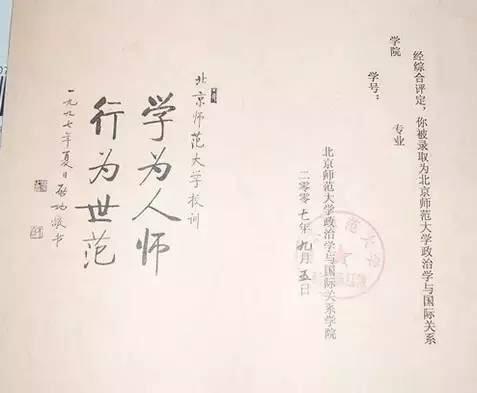 经综合评定，你被录取为北京师范大学政治学与国际关系
学院 专业
学号：
北京师范大学政治学与国际关系学院
二零零七年九月五日
北京师范大学校训
学为人师
行为世范
一九九七年夏日启功敬书